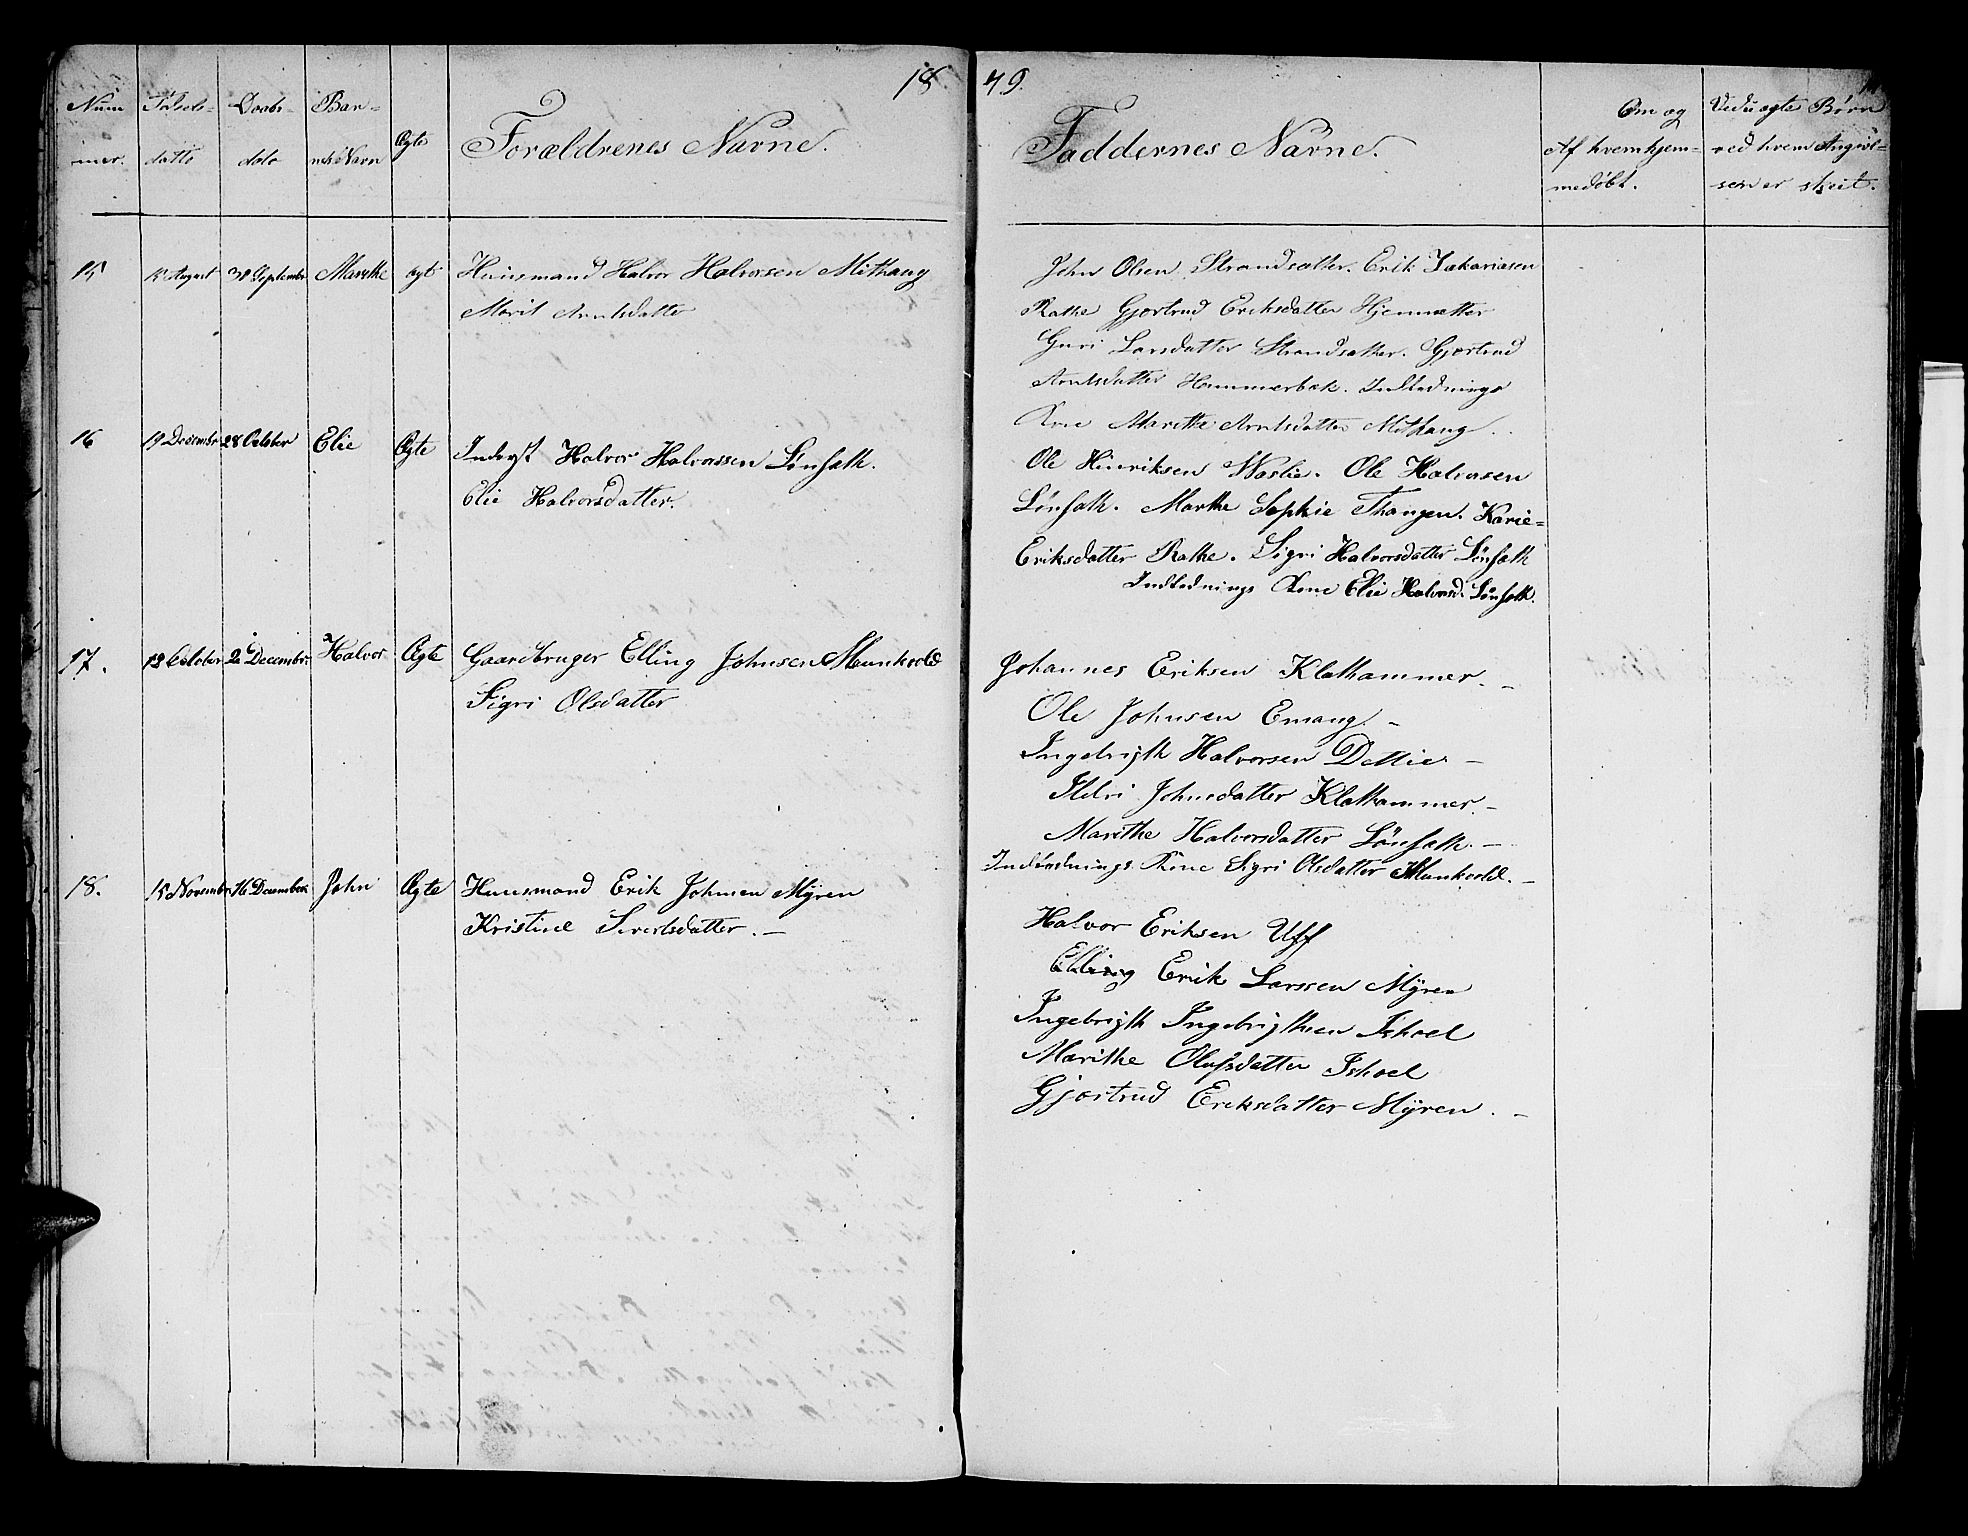 18 49.
Num Fødsels- Daabs- Bar-
mer. datto dato nets Navn Ægte Forældrenes Navne. Faddernes Navne.
Om og
Af hvem hjem-
medøbt.
Ved uægte Børn
ved hvem Angivel-
sen er skeet.
15 15 August 30 September Marithe ægte Huusmand Halvor Halvorsen Mithaug
Marit Arntsdatter
John Olsen Strandsætter. Erik Zakariasen
Rathe Gjertrud Eriksdatter Hjemsætter
Guri Larsdatter Strandsætter. Gjertrud
Arntsdatter Hammerbæk. Indlednings
Kone Marithe Arntsdatter Mithaug.
16 19 Decembr 28 October Elie Ægte Inderst Halvor Halvorssen Lønsæth.
Elie Halvorsdatter.
Ole Hinriksen Waslie. Ole Halvorsen
Lønsæth. Marthe Sophie Thangen. Karie-
Eriksdatter Rathe. Sigri Halvorsdatter Lønsæth
Indlednings Kone Elie Halvorsd. Lønsæth.
17. 12 October 2 Decembr. Halvor Ægte Gaardbruger Elling Johnsen Munkvold
Sigri Olsdatter
Johannes Eriksen Klethammer. -
Ole Johnsen Emaug. -
Ingebrigth Halvorsen Dettie -
Ildri Johnsdatter Klethammer. -
Marithe Halvorsdatter Lønsæth. -
Indlednings Kone Sigri Olsdatter Munkvold. -
18. 15 Novembr. 16 December John Ægte Huusmand Erik Johnsen Myren
Kristine Sivertsdatter. -
Halvor Eriksen Uff
Elling Erik Larssen Myren
Ingebrigth Ingebrigthsen Ishoel
Marithe Olafsdatter Ishoel
Gjertrud Eriksdatter Myren. -